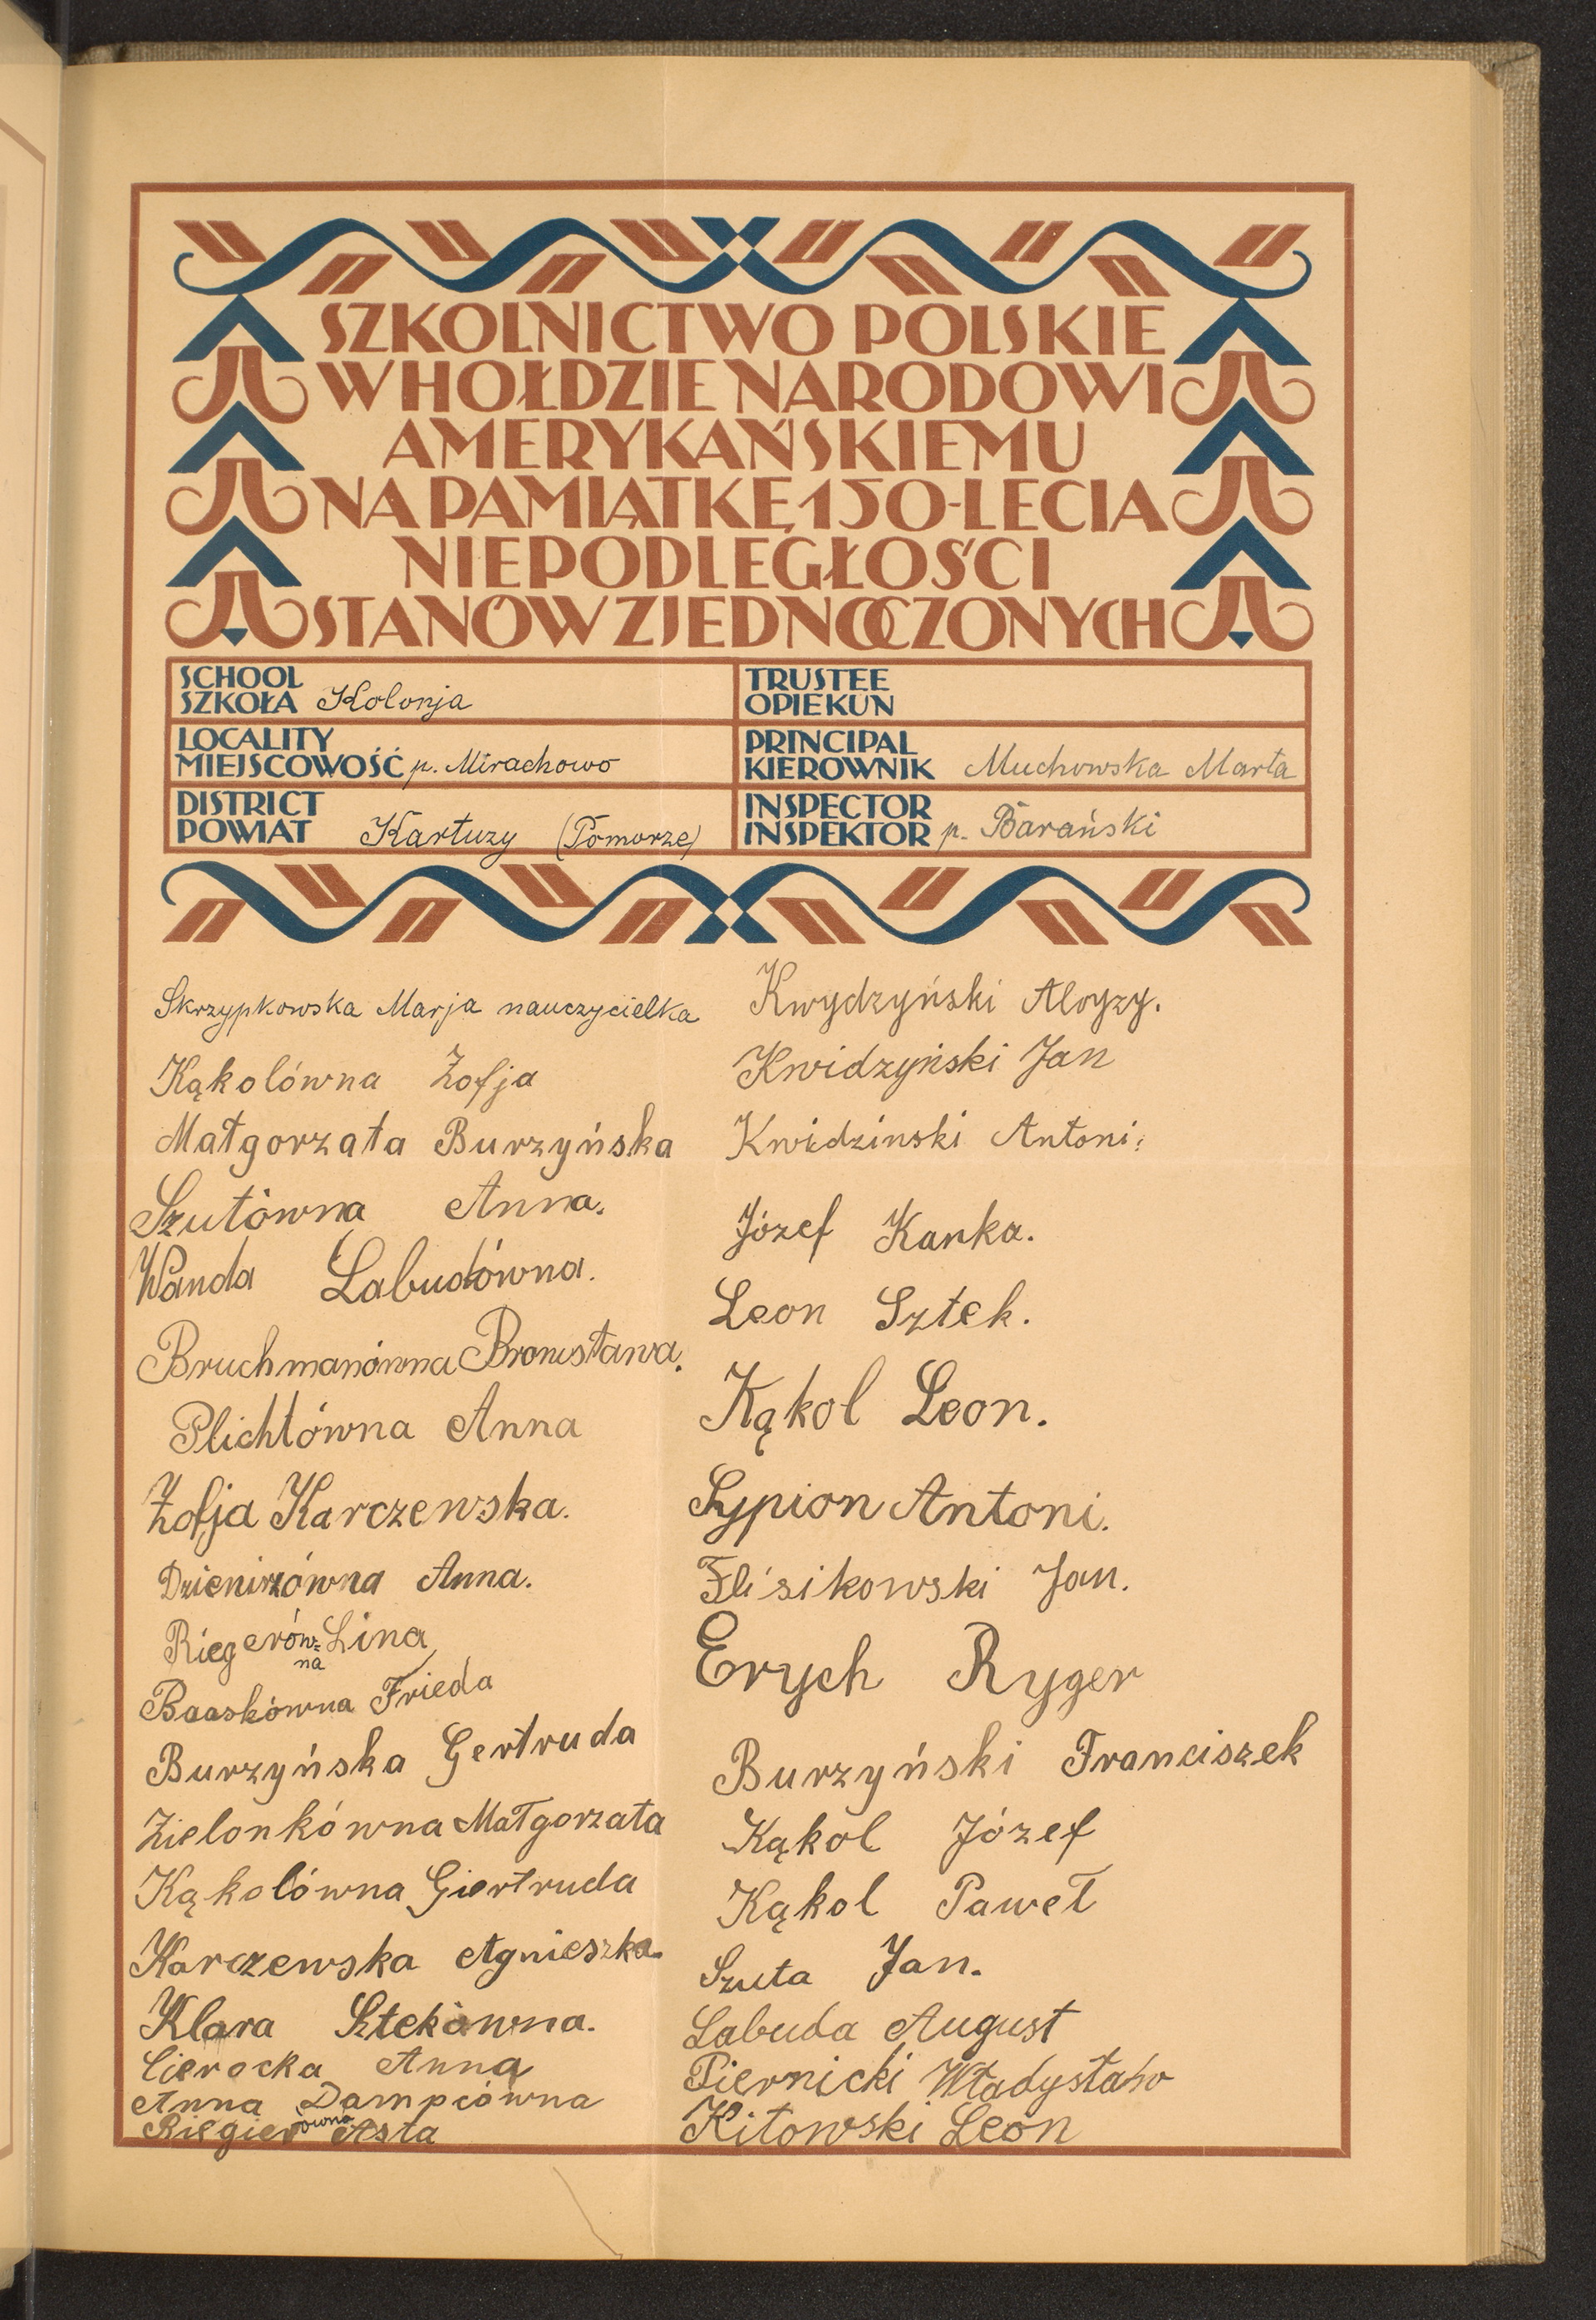 SZKOLNICTWO POLSKIE
W HOŁDZIE NARODOWI
AMERYKAŃSKIEMU
NA PAMIĄTKĘ 150-LECIA
NIEPODLEGŁOŚCI
STANÓW ZJEDNOCZONYCH
SCHOOL
SZKOŁA Kolonja
LOCALITY
MIEJSCOWOŚĆ p. Mirachowo
DISTRICT
POWIAT Kartuzy (Pomorze)
TRUSTEE
OPIEKUN
PRINCIPAL
KIEROWNIK Muchowska Marta
INSPECTOR
INSPEKTOR p. Barański
Skrzypkowska Marja nauczycielka
Kąkolówna Zofja
Małgorzata Burzyńska
Szutówna Anna.
Wanda Labudówna.
Bruchmanówna Bronisława.
Plichtówna Anna
Zofja Karczewska.
Dzienirzówna Anna.
Riegerów=Lina
na
Baaskówna Frieda
Burzyńska Gertruda
Zielonkówna Małgorzata
Kąkolówna Giertruda
Karczewska Agnieszka.
Klara Sztekówna.
Cierocka Anna
Anna Dampcówna
Riegierówna Asta
Kwydzyński Aloyzy.
Kwidzyński Jan
Kwidzinski Antoni.
Józef Kanka.
Leon Sztek.
Kąkol Leon.
Sypion Antoni.
Flisikowski Jan.
Erych Ryger
Burzyński Franciszek
Kąkol Józef
Kąkol Paweł
Szuta Jan.
Labuda August
Piernicki Władysław
Kitowski Leon